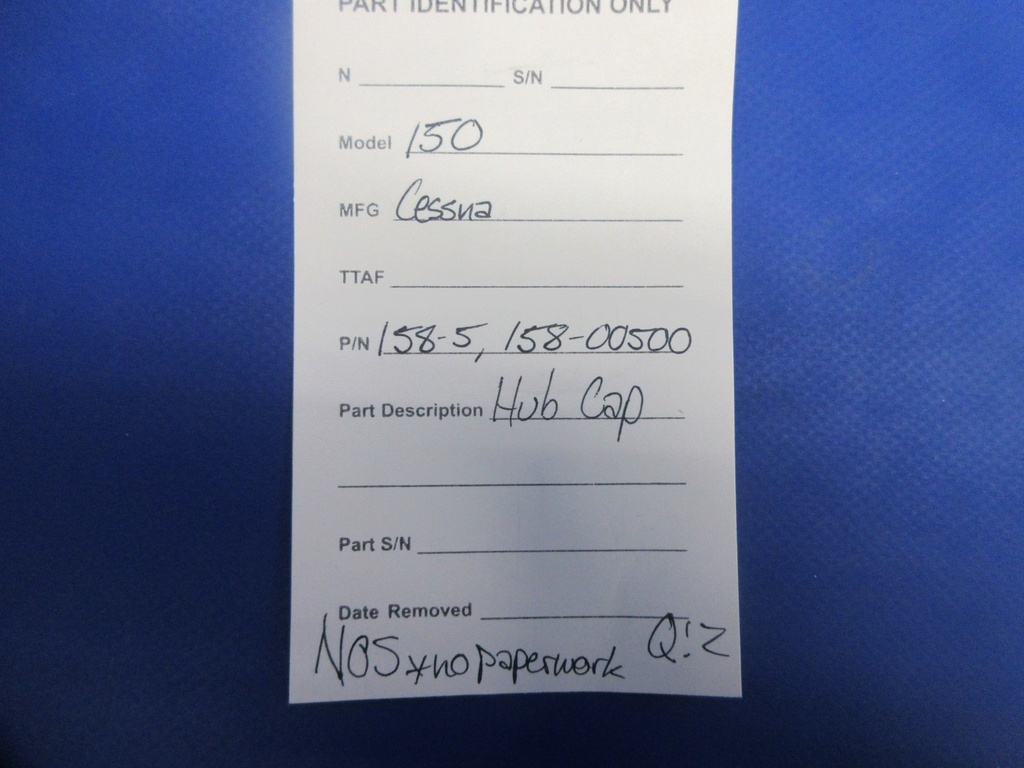 PART IDENTIFICATION ONLY
N S/N
Model 150
MFG Cessna
TTAF
P/N 158-5, 158-00500
Part Description Hub Cap
Part S/N
Date Removed
NOS *no paperwork Q:2